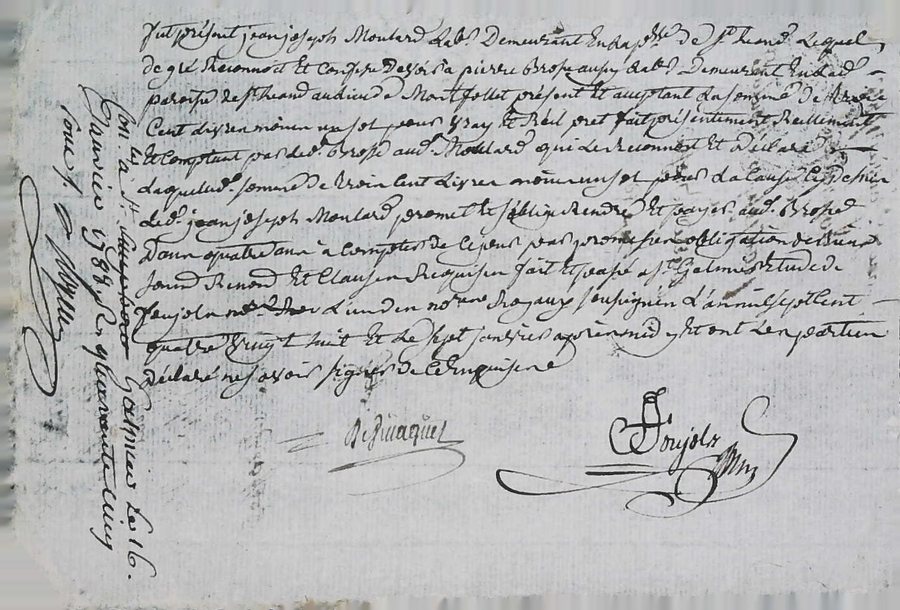 fut présent jean joseph Moulard Lab.r Demeurant En la p.sse de S.t heand Lequel
de gré Reconnoit Et Confesse Devoir a pierre Brosse aussy Lab.r Demeurant En lad.
paroisse de S.t heand au lieu de Montfollet présent Et acceptant La somme de Trois
Cent Livres moins un sol pour vray Et Réel pret fait présentement Réellement
Et Comptant par led. Brosse aud. Moulard qui Le Reconnoit Et Déclare
Laquelle d. somme de Trois Cent Livres moins un sol pour La Cause Cy dessus
Led. jean joseph Moulard promet Et s'oblige Rendre Et payer aud. Brosse
Dans quatre ans à Compter de Ce jour par promesse obligation de biens
soum.s Renon.d Et Clauses Requises fait Et passé a S.t Galmier Etude de
Poujols L'un des no.res Royaux soussignés L'an mil sept Cent
quatre vingt huit Et Le sept janvier après midy Et ont Les parties
Déclaré ne savoir signer de Ce Enquises
Poujols
Con.lé a S.t Galmier Le 16.
janvier 1788 Reçu quarante cinq
sous s.